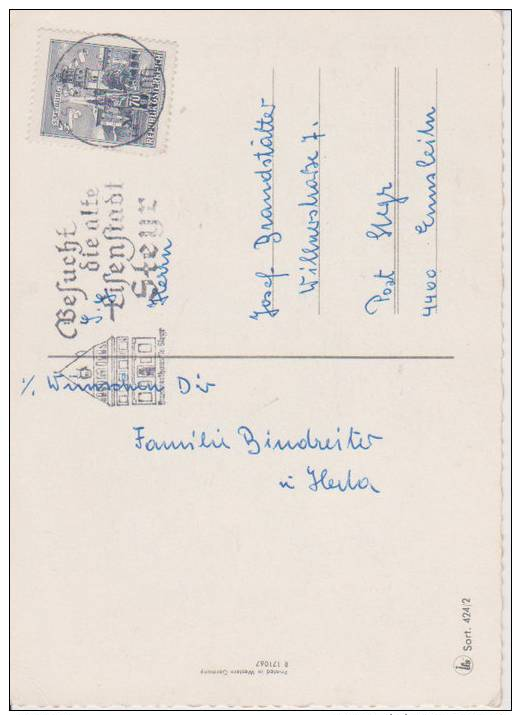 SALZBURG
70
REPUBLIK ÖSTERREICH
Besucht
die alte
Eisenstadt
Steyr
Bummerlhaus in Steyr
S. g.
Herrn
Josef Brandstätter
Willnerstraße 7.
Post Steyr
4400 Ennsleitn
% Wünschen Dir
Familie Bindreiter
u Herta
Printed in Western Germany
R 171067
Sort. 424/2